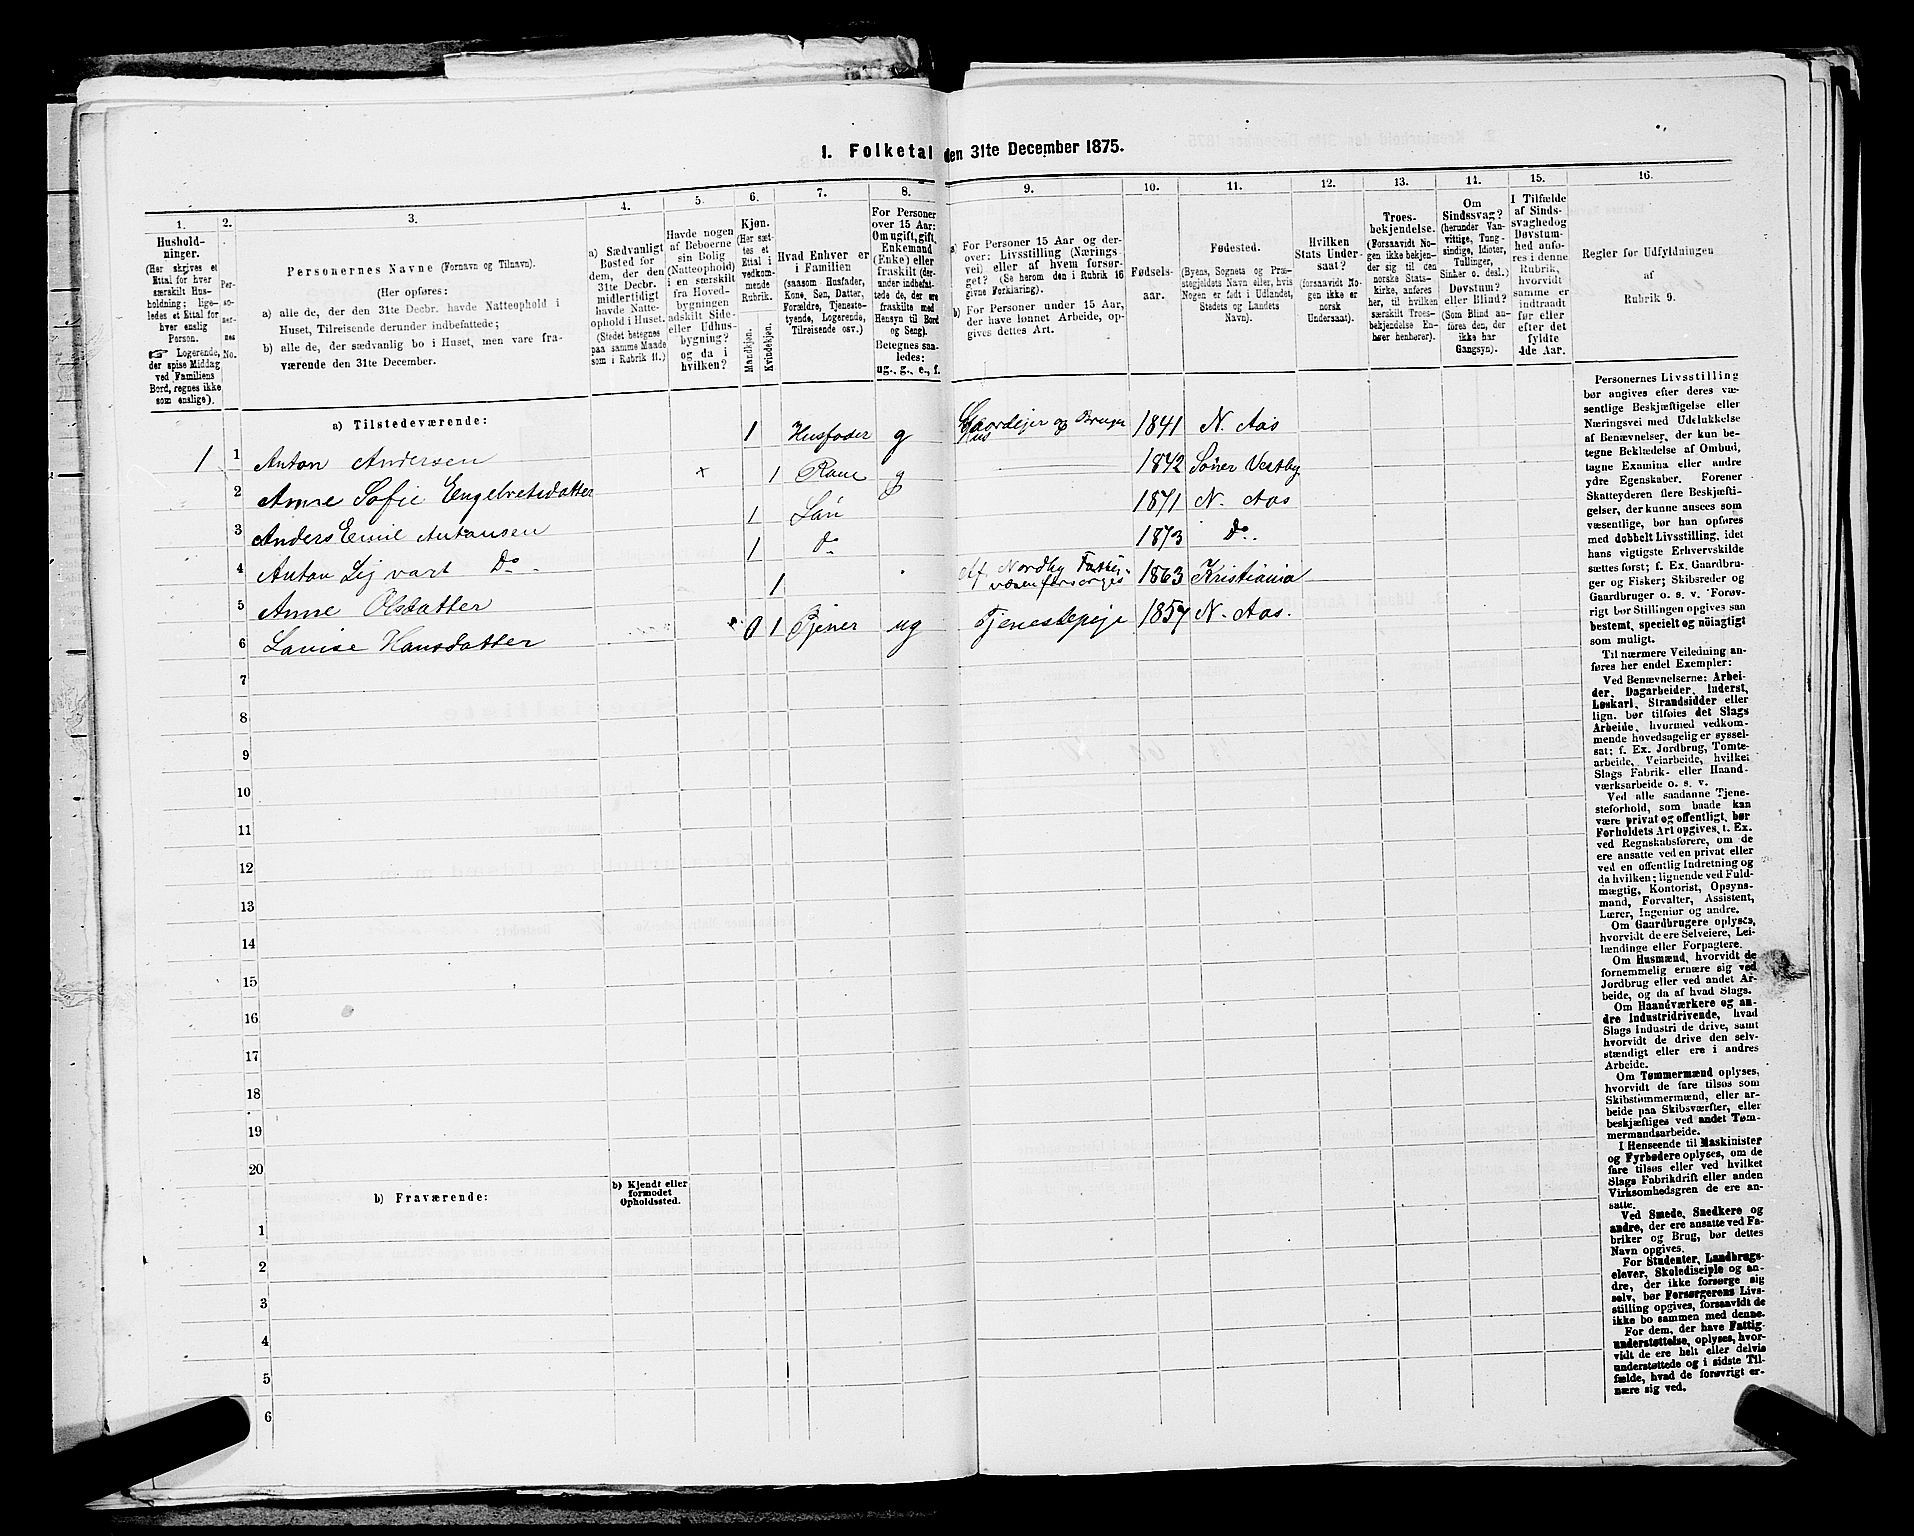 1. Folketal den 31te December 1875.
1.
Hushold-
ninger.
(Her skrives et
Ettal for hver
særskilt Hus-
holdning; lige-
ledes et Ettal for
hver enslig
Person.
Logerende,
der spise Middag
ved Familiens
Bord, regnes ikke
som enslige).
2.
Per-
so-
ner-
nes
No.
3.
Personernes Navne (Fornavn og Tilnavn).
(Her opføres:
a) alle de, der den 31te Decbr. havde Natteophold i
Huset, Tilreisende derunder indbefattede;
b) alle de, der sædvanlig bo i Huset, men vare fra-
værende den 31te December.
4.
a) Sædvanligt
Bosted for
dem, der den
31te Decbr.
midlertidigt
havde Natte-
ophold i Huset.
(Stedet betegnes
paa samme Maade
som i Rubrik 11.)
5.
Havde nogen
af Beboerne
sin Bolig
(Natteophold)
i en særskilt
fra Hoved-
bygningen
adskilt Side-
eller Udhus-
bygning?
og da i
hvilken?
6.
Kjøn.
(Her sæt-
tes et
Ettal i
vedkom-
mende
Rubrik.
Mandkjøn.
Kvindekjøn.
7.
Hvad Enhver er
i Familien
(saasom Husfader,
Kone, Søn, Datter,
Forældre, Tjeneste-
tyende, Logerende,
Tilreisende osv.)
8.
For Personer
over 15 Aar:
Om ugift, gift,
Enkemand
(Enke) eller
fraskilt (der-
under indbefat-
tede de, der ere
fraskilte med
Hensyn til Bord
og Seng).
Betegnes saa-
ledes:
ug., g., e., f.
9.
a) For Personer 15 Aar og der-
over: Livsstilling (Nærings-
vei) eller af hvem forsør-
get? (Se herom den i Rubrik 16
givne Forklaring).
b) For Personer under 15 Aar,
der have lønnet Arbeide, op-
gives dettes Art.
10.
Fødsels-
aar.
11.
Fødested.
(Byens, Sognets og Præ-
stegjeldets Navn eller, hvis
Nogen er født i Udlandet,
Stedets og Landets
Navn).
12.
Hvilken
Stats Under-
saat?
(forsaavidt No-
gen ikke er
norsk
Undersaat).
13.
Troes-
bekjendelse.
(Forsaavidt No-
gen ikke bekjen-
der sig til den
norske Stats-
kirke, anføres
her, til hvilken
særskilt Troes-
bekjendelse En-
hver henhører).
14.
Om
Sindssvag?
(herunder Van-
vittige, Tung-
sindige, Idioter,
Sinker o. desl.)
Døvstum?
eller Blind?
(Som Blind an-
føres den, der
ikke har
Gangsyn).
15.
I Tilfælde
af Sinds-
svaghed og
Døvstum-
hed anfø-
res i denne
Rubrik,
hvorvidt
samme er
indtraadt
før eller
efter det
fyldte
4de Aar.
16.
Regler for Udfyldningen
af
Rubrik 9.
a) Tilstedeværende:
1 1 Anton Andersen 1 Husfader g Gaardejer og Bruger 1841 N. Aas
Hus
2 Anne Sofie Engebretsdatter x 1 Kone g 1842 Soner Vestby
3 Anders Emil Antonsen 1 Søn 1871 N. Aas
4 Anton Sigvart Do. 1 Do 1873 Do.
5 Anne Olsdatter 1 Af Nordby Fattig-
væsen forsørges 1863 Kristiania
6 Lovise Hansdatter 0 1 Tjener ug Tjenestepige 1857 N. Aas.
7
8
9
10
11
12
13
14
15
16
17
18
19
20
b) Fraværende:
b) Kjendt eller
formodet
Opholdssted.
1
2
3
4
5
6
Personernes Livsstilling
bør angives efter deres væ-
sentlige Beskjæftigelse eller
Næringsvei med Udelukkelse
af Benævnelser, der kun be-
tegne Beklædelse af Ombud,
tagne Examina eller andre
ydre Egenskaber. Forener
Skatteyderen flere Beskjæfti-
gelser, der kunne ansees som
væsentlige, bør han opføres
med dobbelt Livsstilling, idet
hans vigtigste Erhvervskilde
sættes først; f. Ex. Gaardbru-
ger og Fisker; Skibsreder og
Gaardbruger o. s. v. Forøv-
rigt bør Stillingen opgives saa
bestemt, specielt og nøiagtigt
som muligt.
Til nærmere Veiledning an-
føres her endel Exempler:
Ved Benævnelserne: Arbei-
der, Dagarbeider, Inderst,
Løskarl, Strandsidder eller
lign. bør tilføies det Slags
Arbeide, hvormed vedkom-
mende hovedsagelig er syssel-
sat; f. Ex. Jordbrug, Tomte-
arbeide, Veiarbeide, hvilket
Slags Fabrik- eller Haand-
værksarbeide o. s. v.
Ved alle saadanne Tjene-
steforhold, som baade kan
være privat og offentligt, bør
Forholdets Art opgives, t. Ex.
ved Regnskabsførere, om de
ere ansatte ved en privat eller
ved en offentlig Indretning og
da hvilken; lignende ved Fuld-
mægtig, Kontorist, Opsyns-
mand, Forvalter, Assistent,
Lærer, Ingeniør og andre.
Om Gaardbrugere oplyses,
hvorvidt de ere Selveiere, Lei-
lændinge eller Forpagtere.
Om Husmænd, hvorvidt de
fornemmelig ernære sig ved
Jordbrug eller ved andet Ar-
beide, og da af hvad Slags.
Om Haandværkere og an-
dre Industridrivende, hvad
Slags Industri de drive, samt
hvorvidt de drive den selv-
stændigt eller ere i andres
Arbeide.
Om Tømmermænd oplyses,
hvorvidt de fare tilsøs som
Skibstømmermænd, eller ar-
beide paa Skibsværfter, eller
beskjæftiges ved andet Tøm-
mermandsarbeide.
I Henseende til Maskinister
og Fyrbødere oplyses, om de
fare tilsøs eller ved hvilket
Slags Fabrikdrift eller anden
Virksomhedsgren de ere an-
satte.
Ved Smede, Snedkere og
andre, der ere ansatte ved Fa-
briker og Brug, bør dettes
Navn opgives.
For Studenter, Landbrugs-
elever, Skoledisciple og an-
dre, der ikke forsørge sig
selv, bør Forsørgerens Livs-
stilling opgives, forsaavidt de
ikke bo sammen med denne.
For dem, der have Fattig-
understøttelse, oplyses, hvor-
vidt de ere helt eller delvis
understøttede og i sidste Til-
fælde, hvad de forøvrigt er-
nære sig ved.